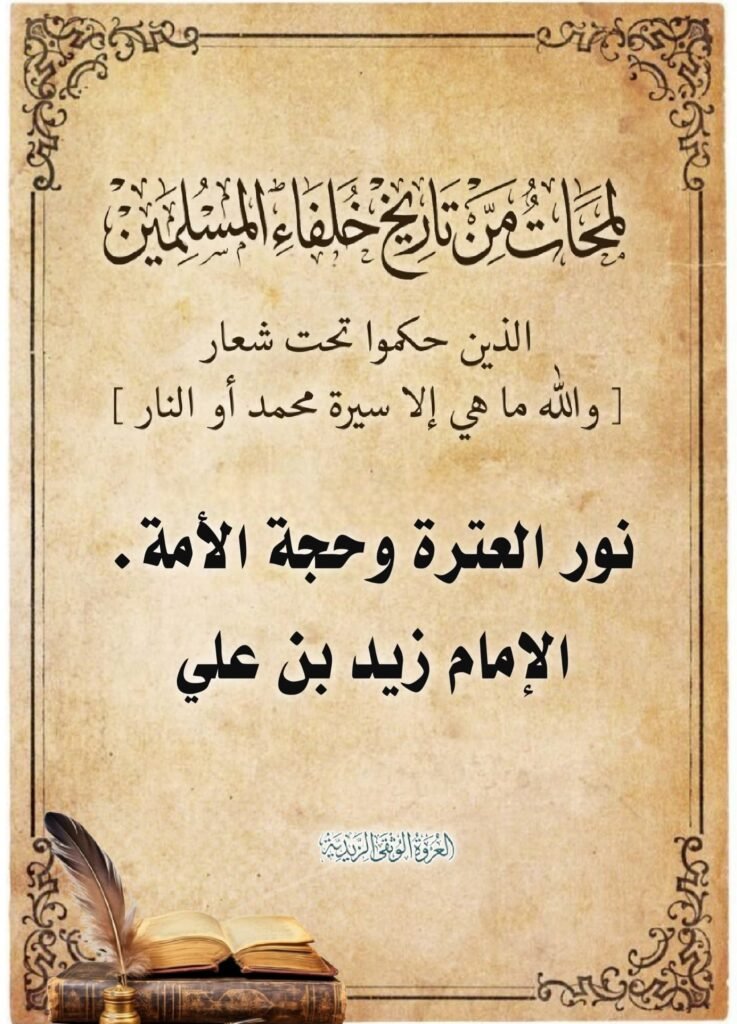 لمحَاتٌ مِنَّ تَارِيخِ خُلَفَاءِ المُسْلِمَين
الذين حكموا تحت شعار
[ والله ما هي إلا سيرة محمد أو النار ]
نور العترة وحجة الأمة.
الإمام زيد بن علي
العُروَةُ الوُثقى الزَّيدِيَّة